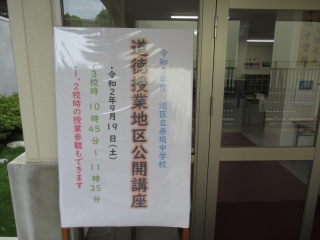 令和2年度 港区立赤坂中学校
道徳授業地区公開講座
・令和2年9月19日(土)
・3校時 10時45分~11時35分
・1、2校時の授業参観もできます